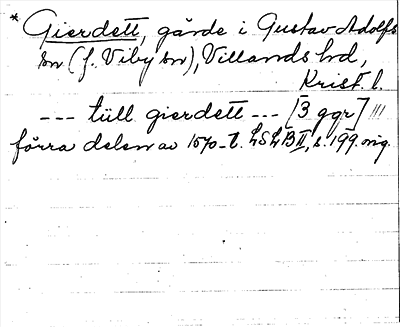 * Gierdett, gärde i Gustav Adolfs
sn (f. Viby sn), Villands hd,
Krist. l.
--- tüll gierdett --- [3 ggr] |||
förra delen av 1570-t. LSLBII, s. 199. orig.